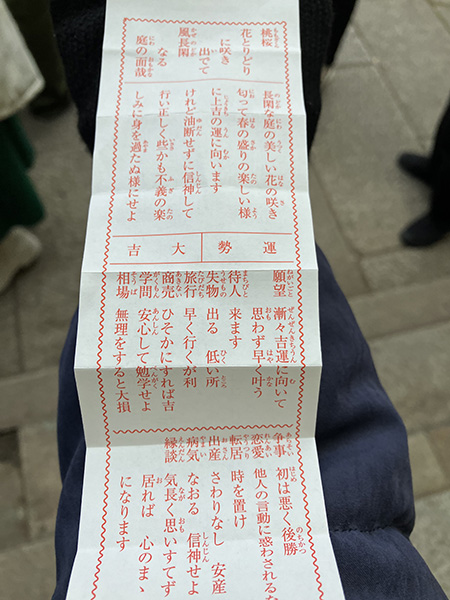 桃桜
花とりどり
に咲き
出でて
風長閑
なる
庭の面哉
長閑な庭の美しい花の咲き
匂って春の盛りの楽しい様
に上吉の運に向います
けれど油断せずに信神して
行い正しく些かも不義の楽
しみに身を過たぬ様にせよ
運勢 大吉
願望 漸々吉運に向いて
思わず早く叶う
待人 来ます
失物 出る 低い所
旅行 早く行くが利
商売 ひそかにすれば吉
学問 安心して勉学せよ
相場 無理をすると大損
争事 初は悪く後勝
恋愛 他人の言動に惑わされるな
転居 時を置け
出産 さわりなし 安産
病気 なおる 信神せよ
縁談 気長く思いすてず
居れば 心のまゝ
になります